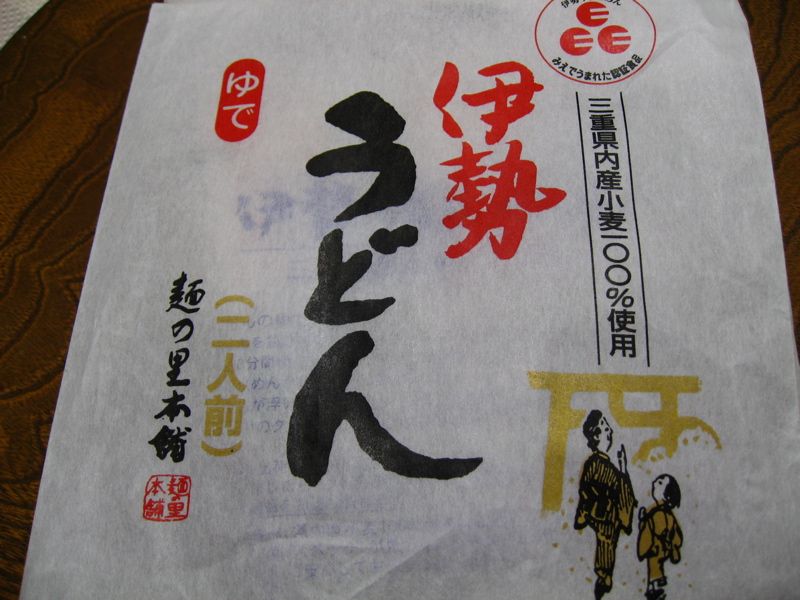 みえでうまれた認証食品
三重県内産小麦一〇〇%使用
伊勢
うどん
ゆで
(二人前)
麺の里本舗
麺の里
本舗